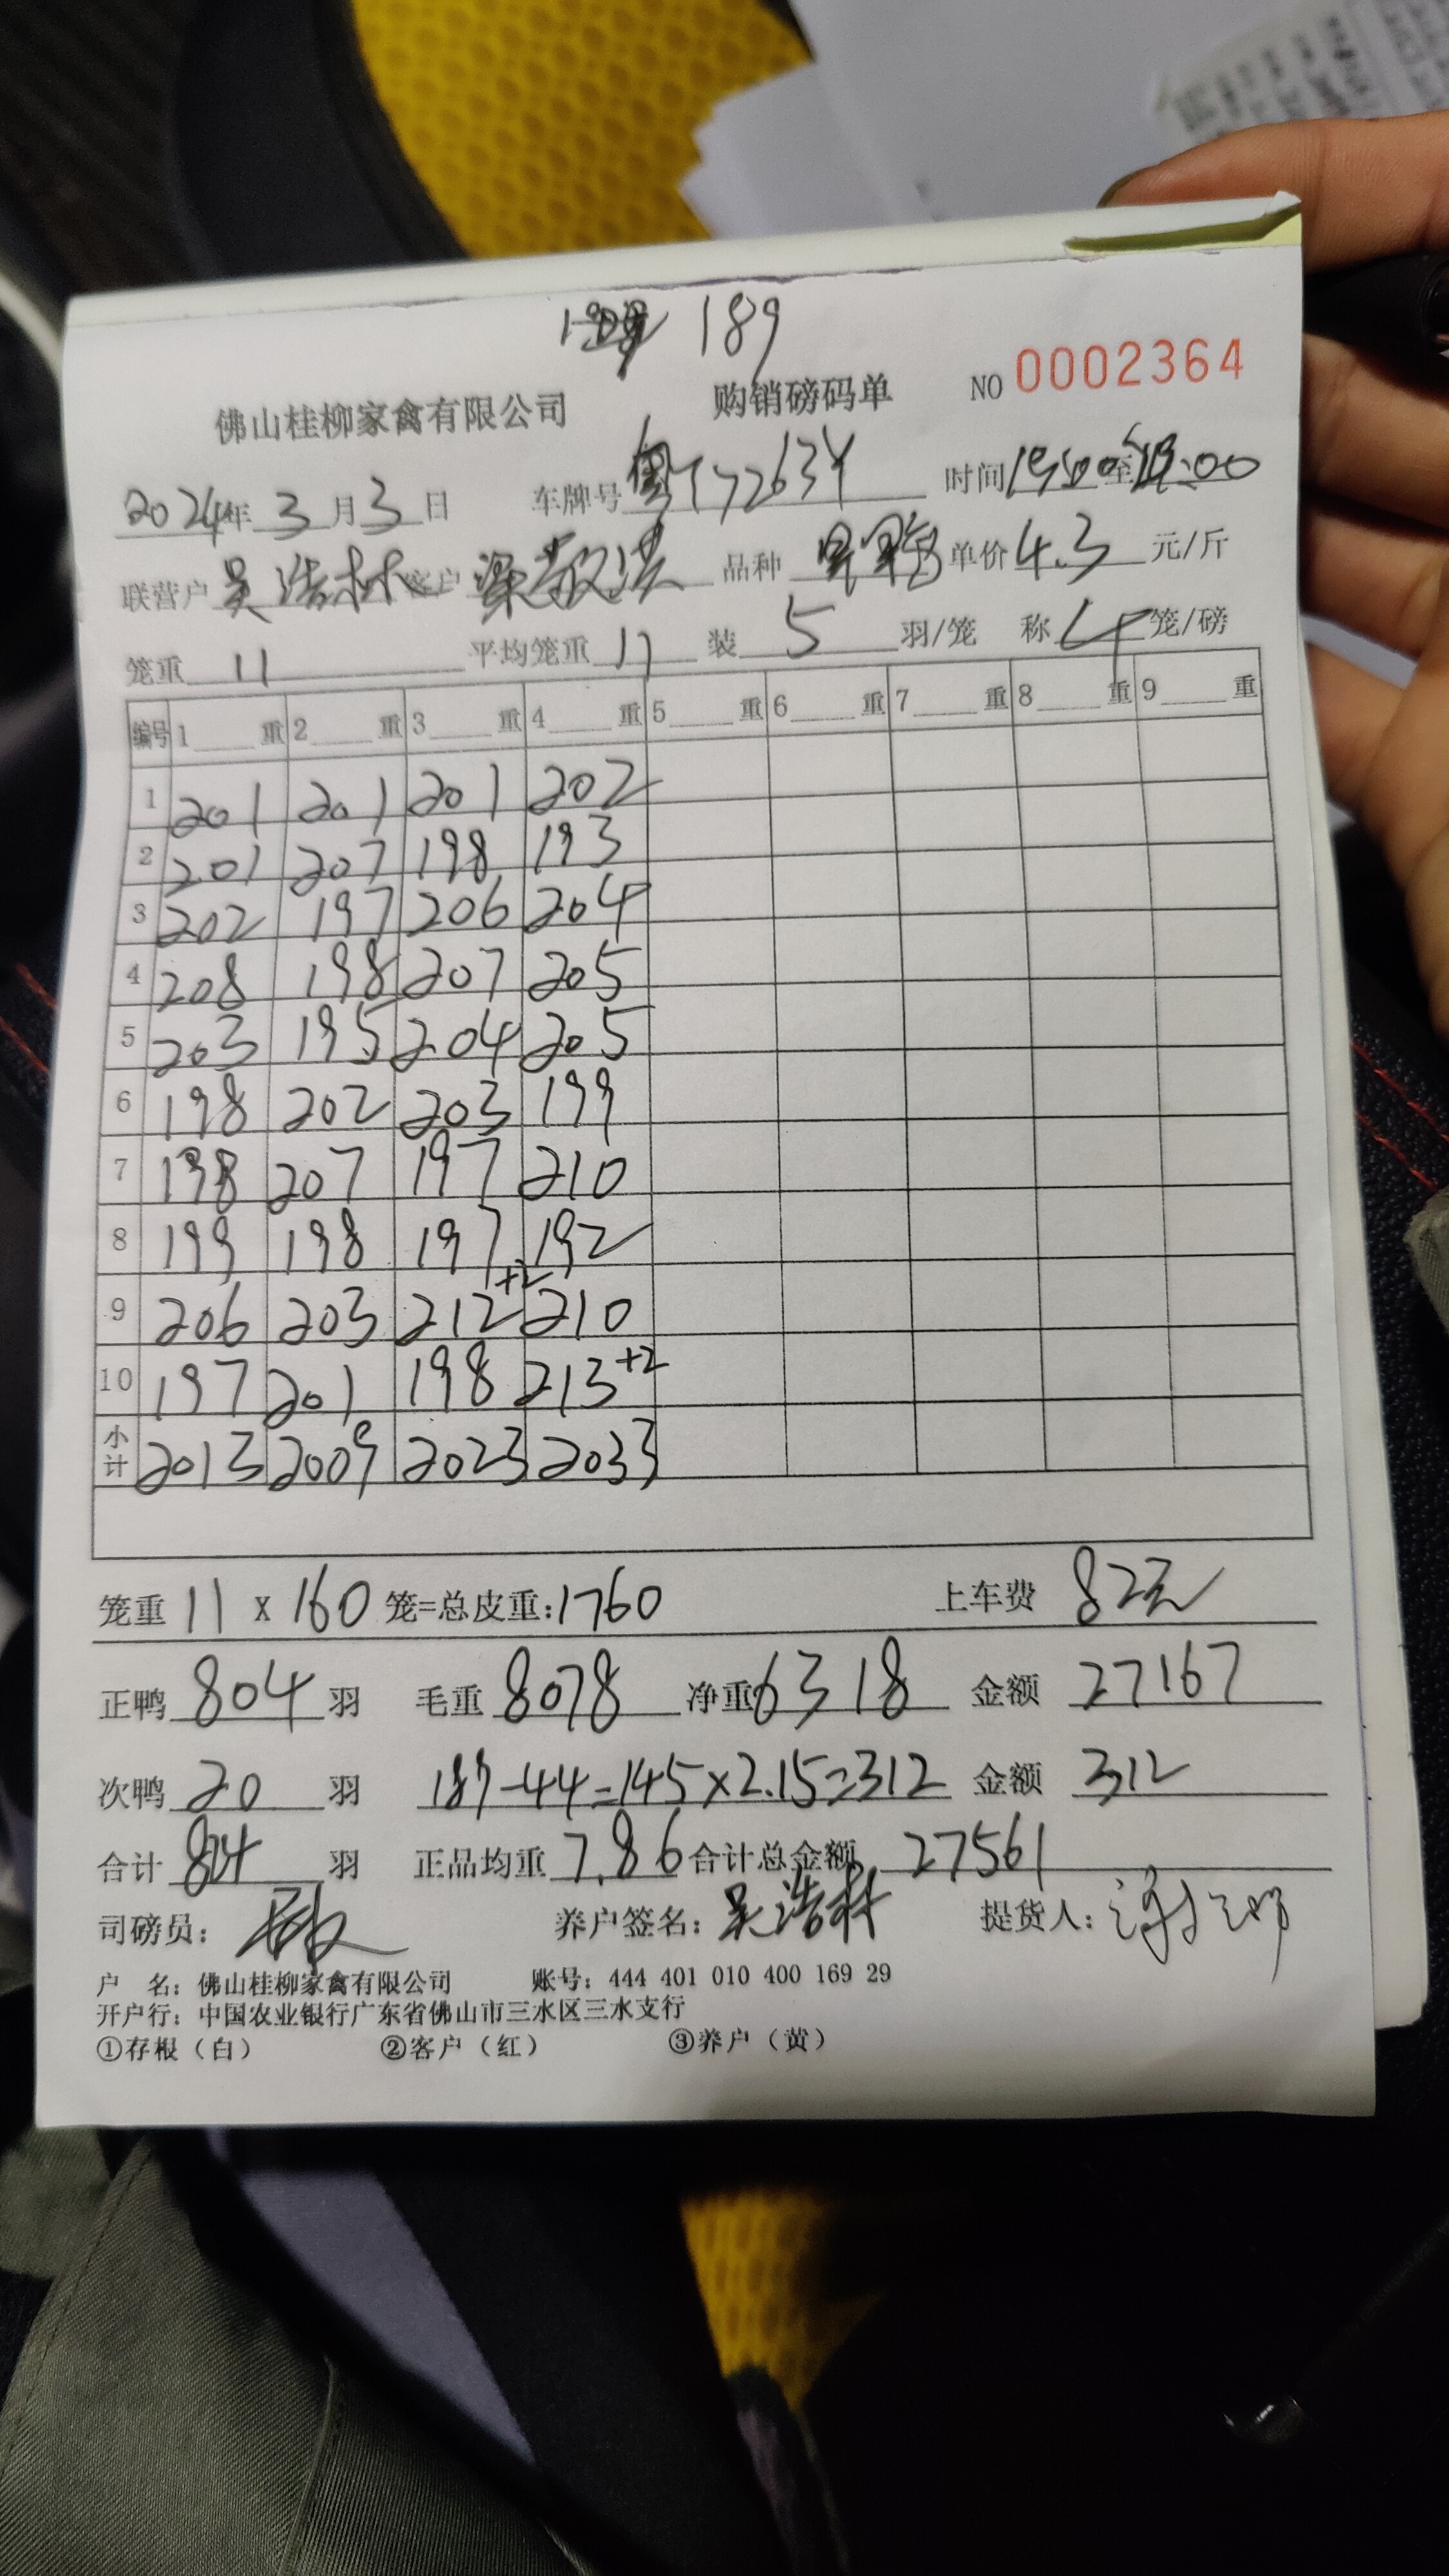 189
佛山桂柳家禽有限公司 购销磅码单 NO 0002364
2024年 3 月 3 日 车牌号 粤T7263Y 时间 至 :00
联营户 吴浩林 客户 梁敬洪 品种 单价 4.3 元/斤
笼重 11 平均笼重 11 装 5 羽/笼 称 4 笼/磅
编号 1 重 2 重 3 重 4 重 5 重 6 重 7 重 8 重 9 重
1 201 201 201 202
2 201 207 198 193
3 202 197 206 204
4 208 198 207 205
5 203 195 204 205
6 198 202 203 199
7 198 207 197 210
8 199 198 197 192
9 206 203 212+2 210
10 197 201 198 213+2
小计 2013 2009 2023 2033
笼重 11 x 160 笼=总皮重:1760 上车费 82元
正鸭 804 羽 毛重 8078 净重 6318 金额 27167
次鸭 20 羽 189-44=145×2.15=312 金额 312
合计 824 羽 正品均重 7.86 合计总金额 27561
司磅员: 养户签名: 吴浩林 提货人:
户 名: 佛山桂柳家禽有限公司 账号: 444 401 010 400 169 29
开户行: 中国农业银行广东省佛山市三水区三水支行
①存根（白） ②客户（红） ③养户（黄）